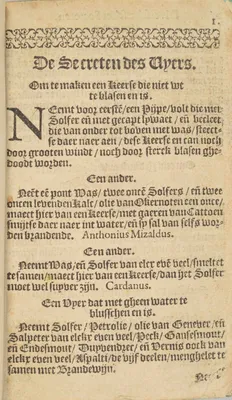 1.
De Secreten des Vyers.
Om te maken een Keerse die niet wt
te blasen en is.
NEemt voor eerst/ een Pijpe/ volt die met
Solfer eñ met gecapt lijwaet / eñ becleet
die van onder tot boven met was / steect-
se daer naer aen / dese Keerse en can noch
door grooten windt / noch door sterck blasen ghe-
doodt worden.
Een ander.
Neēt eē pont Was / twee oncē Solfers / eñ twee
oncen levenden Kalc / olie van Okernoten een once/
maect hier van een Keerse / met gaeren van Cattoen
smijtse daer naer int water / eñ sy sal van selfs wor-
den brandende. Anthonius Mizaldus.
Een ander.
Neemt Was / eñ Solfer van elcx evē veel / smeltet
te samen / maect hier van een keerse / dan het Solfer
moet wel suyver zijn. Cardanus.
Een Vyer dat met gheen water te
blusschen en is.
Neemt Solfer / Petrolie / olie van Genever / eñ
Salpeter van elckx even veel / Peck / Gansesmout /
eñ Endesmout / Duyvendrec / eñ Vernis oock van
elckx even veel / Aspalti / de vijf deelen / menghelet te
samen met Brandewijn.